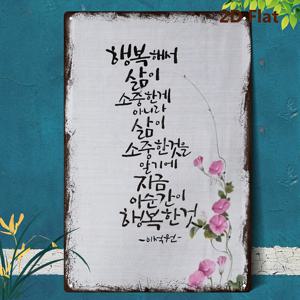 2D Flat
행복해서
삶이
소중한게
아니라
삶이
소중한것을
알기에
지금
이순간이
행복한것
-이석원-